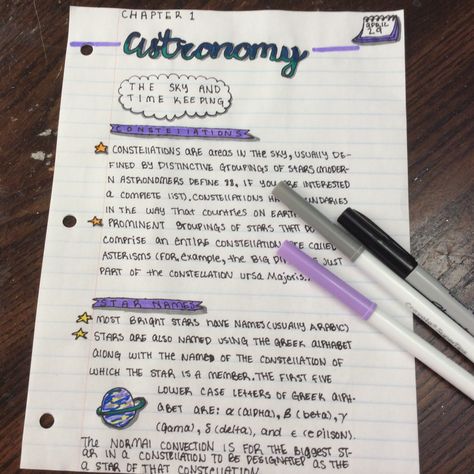 CHAPTER 1
APRIL
29
astronomy
THE SKY AND
TIME KEEPING
CONSTELLATIONS
CONSTELLATIONS ARE AREAS IN THE SKY, USUALLY DE-
FINED BY DISTINCTIVE GROUPINGS OF STARS (MODER-
N ASTRONOMERS DEFINE 88, IF YOU ARE INTERESTED
A COMPLETE LIST). CONSTELLATIONS HA
IN THE WAY THAT COUNTRIES ON EARTH
PROMINENT GROUPINGS OF STARS THAT DO
COMPRISE AN ENTIRE CONSTELLATION ARE CALLED
ASTERISMS (FOR EXAMPLE, THE BIG DI JUST
PART OF THE CONSTELLATION URSA MAJORIS.)
STAR NAMES
MOST BRIGHT STARS HAVE NAMES (USUALLY ARABIC)
STARS ARE ALSO NAMED USING THE GREEK ALPHABET
ALONG WITH THE NAMED OF THE CONSTELLATION OF
WHICH THE STAR IS A MEMBER. THE FIRST FIVE
LOWER CASE LETTERS OF GREEK ALPH-
ABET ARE: α (ALPHA), β (BETA), γ
(GAMA), δ (DELTA), AND ε (EPILSON).
THE NORMAL CONVECTION IS FOR THE BIGGEST ST-
AR IN A CONSTELLATION TO BE DESIGNATED AS THE
A STAR OF THAT CONSTELLATION